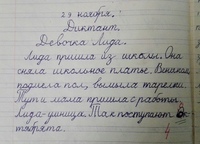 29 ноября.
Диктант.
Девочка Лида.
Лида пришла из школы. Она
сняла школьное платье. Веником
подмела пол, вымыла тарелки.
Тут и мама пришла с работы.
Лида-умница. Так поступают ок-
тябрята.
4